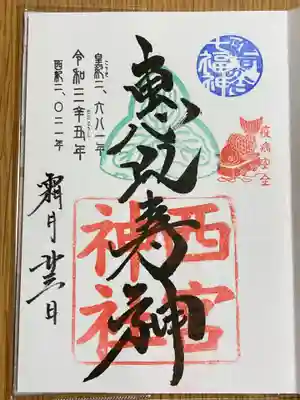 七福神
恵比寿神
西宮
神社
皇紀二、六八一年
令和三辛丑年
西暦二、〇二一年
霜月
日